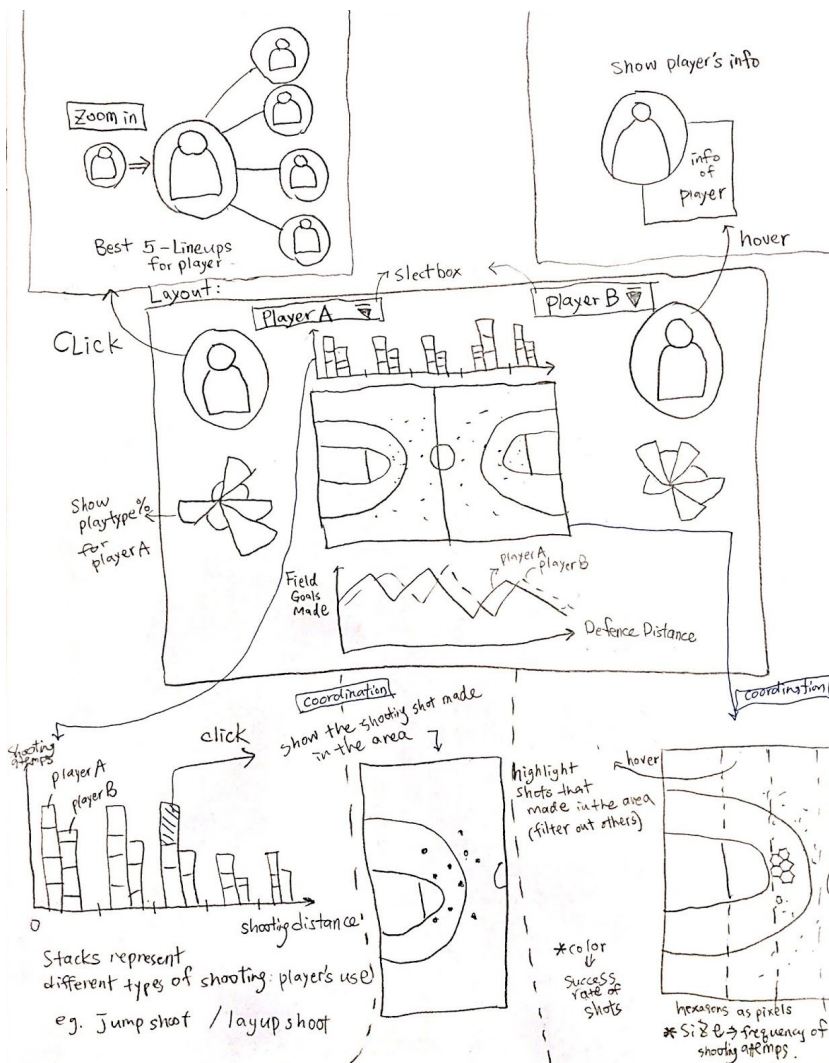 Zoom in
Best 5-Lineups
for player
Show player's info
info
of
player
hover
Layout:
Slectbox
Player A
Player B
CLICK
Show
playtype%
for
player A
Field
Goals
Made
playerA
playerB
Defence Distance
coordination
coordination
Shooting
attemps
player A
player B
click
show the shooting shot made
in the area
0
shooting distance
Stacks represent
different types of shooting player's use
eg. Jump shoot / layup shoot
hover
highlight
shots that
made in the area
(filter out others)
*color
success
rate of
shots
hexagons as pixels
*Size → frequency of
shooting attemps.